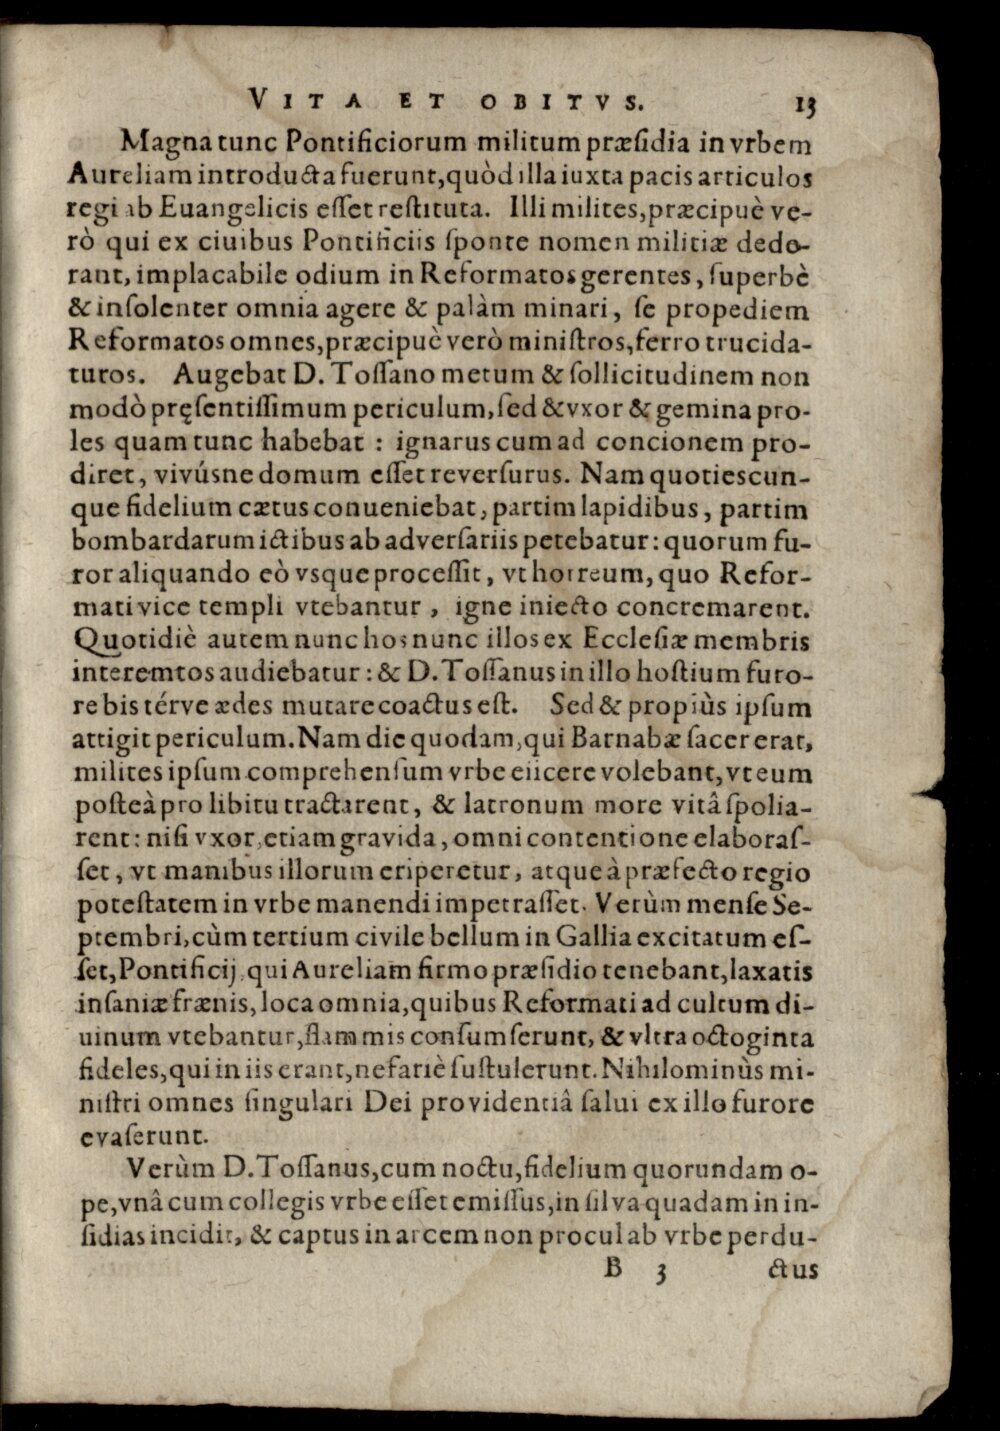 VITA ET OBITVS. 13
Magna tunc Pontificiorum militum præsidia in vrbem
Aureliam introducta fuerunt, quòd illa iuxta pacis articulos
regi ab Euangelicis esset restituta. Illi milites, præcipuè ve-
rò qui ex ciuibus Pontificiis sponte nomen militiæ dede-
rant, implacabile odium in Reformatos gerentes, superbè
& insolenter omnia agere & palàm minari, se propediem
Reformatos omnes, præcipuè verò ministros, ferro trucida-
turos. Augebat D. Tossano metum & sollicitudinem non
modò pręsentissimum periculum, sed & vxor & gemina pro-
les quam tunc habebat : ignarus cum ad concionem pro-
diret, vivúsne domum esset reversurus. Nam quotiescun-
que fidelium cætus conueniebat, partim lapidibus, partim
bombardarum ictibus ab adversariis petebatur: quorum fu-
ror aliquando eò vsque processit, vt horreum, quo Refor-
mati vice templi vtebantur, igne iniecto concremarent.
Quotidiè autem nunc hos nunc illos ex Ecclesiæ membris
interemtos audiebatur : & D. Tossanus in illo hostium furo-
re bis térve ædes mutare coactus est. Sed & propiùs ipsum
attigit periculum. Nam die quodam, qui Barnabæ sacer erat,
milites ipsum comprehensum vrbe eiicere volebant, vt eum
posteà pro libitu tractarent, & latronum more vitâ spolia-
rent: nisi vxor, etiam gravida, omni contentione elaboras-
set, vt manibus illorum eriperetur, atque à præfecto regio
potestatem in vrbe manendi impetrasset. Verùm mense Se-
ptembri, cùm tertium civile bellum in Gallia excitatum es-
set, Pontificij, qui Aureliam firmo præsidio tenebant, laxatis
insaniæ frænis, loca omnia, quibus Reformati ad cultum di-
uinum vtebantur, flammis consumserunt, & vltra octoginta
fideles, qui in iis erant, nefariè sustulerunt. Nihilominùs mi-
nistri omnes singulari Dei providentiâ salui ex illo furore
evaserunt.
Verùm D. Tossanus, cum noctu, fidelium quorundam o-
pe, vnâ cum collegis vrbe esset emissus, in silva quadam in in-
sidias incidit, & captus in arcem non procul ab vrbe perdu-
B 3 ctus